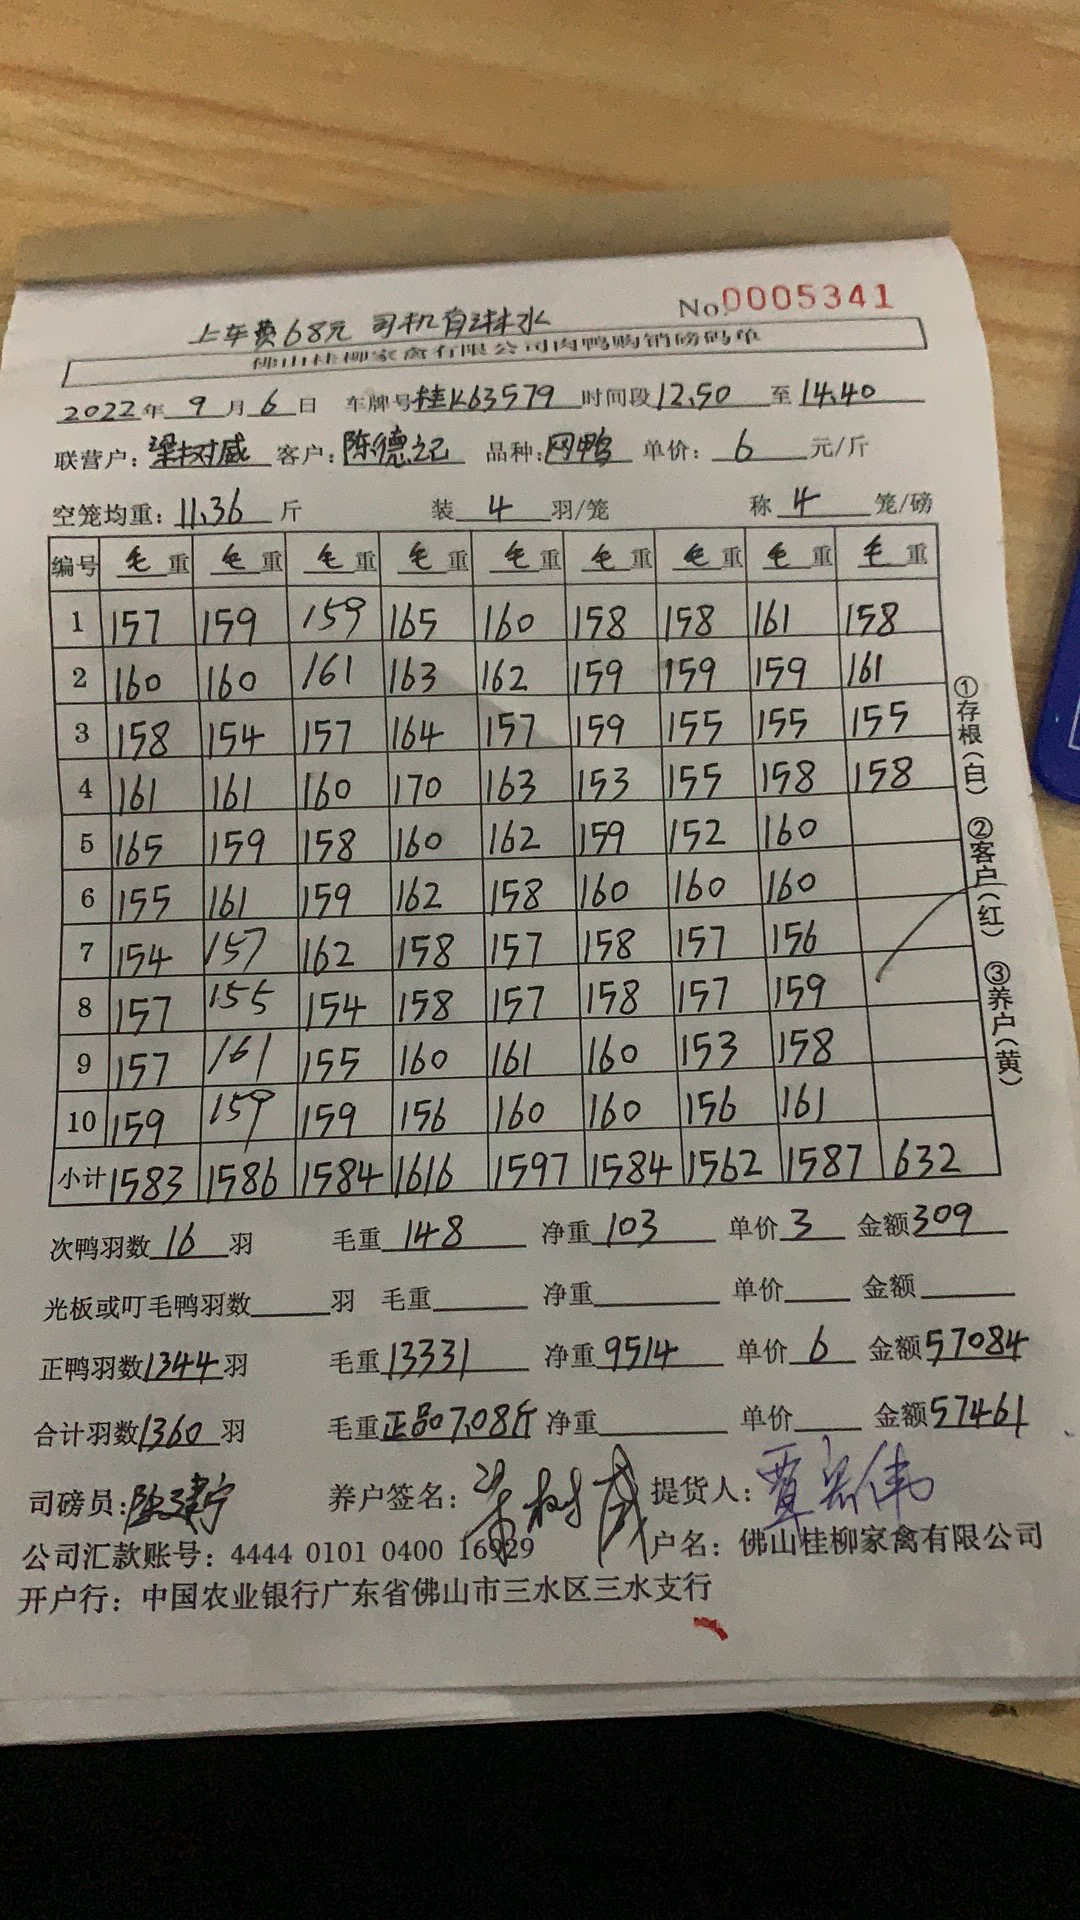 上车费68元 司机自淋水
No.0005341
佛山桂柳家禽有限公司肉鸭购销磅码单
2022年 9月 6日 车牌号桂K63579 时间段12.50 至14.40
联营户：梁树威 客户：陈德记 品种：网鸭 单价：6 元/斤
空笼均重：11.36 斤 装 4 羽/笼 称 4 笼/磅
编号 毛重 毛重 毛重 毛重 毛重 毛重 毛重 毛重 毛重
1 157 159 159 165 160 158 158 161 158
2 160 160 161 163 162 159 159 159 161
3 158 154 157 164 157 159 155 155 155
4 161 161 160 170 163 153 155 158 158
5 165 159 158 160 162 159 152 160
6 155 161 159 162 158 160 160 160
7 154 157 162 158 157 158 157 156
8 157 155 154 158 157 158 157 159
9 157 161 155 160 161 160 153 158
10 159 159 159 156 160 160 156 161
小计 1583 1586 1584 1616 1597 1584 1562 1587 632
①存根(白) ②客户(红) ③养户(黄)
次鸭羽数 16 羽 毛重 148 净重 103 单价 3 金额 309
光板或叮毛鸭羽数 羽 毛重 净重 单价 金额
正鸭羽数 1344 羽 毛重 13331 净重 9514 单价 6 金额 57084
合计羽数 1360 羽 毛重 正品07.08斤 净重 单价 金额 57461
司磅员：陈建宁 养户签名：梁树威 提货人：覃宏伟
公司汇款账号：4444 0101 0400 16929 户名：佛山桂柳家禽有限公司
开户行：中国农业银行广东省佛山市三水区三水支行